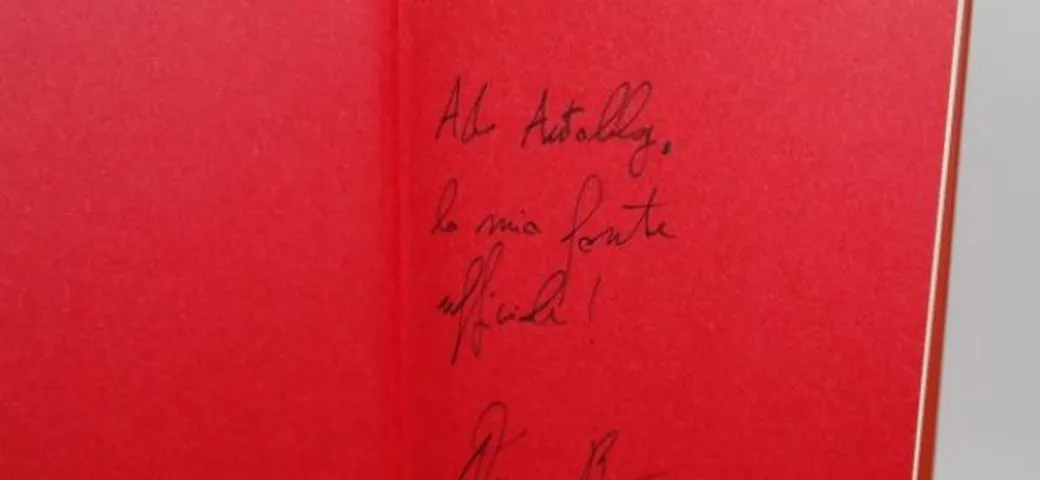 Ad Autoblog,
la mia fonte
ufficiale!